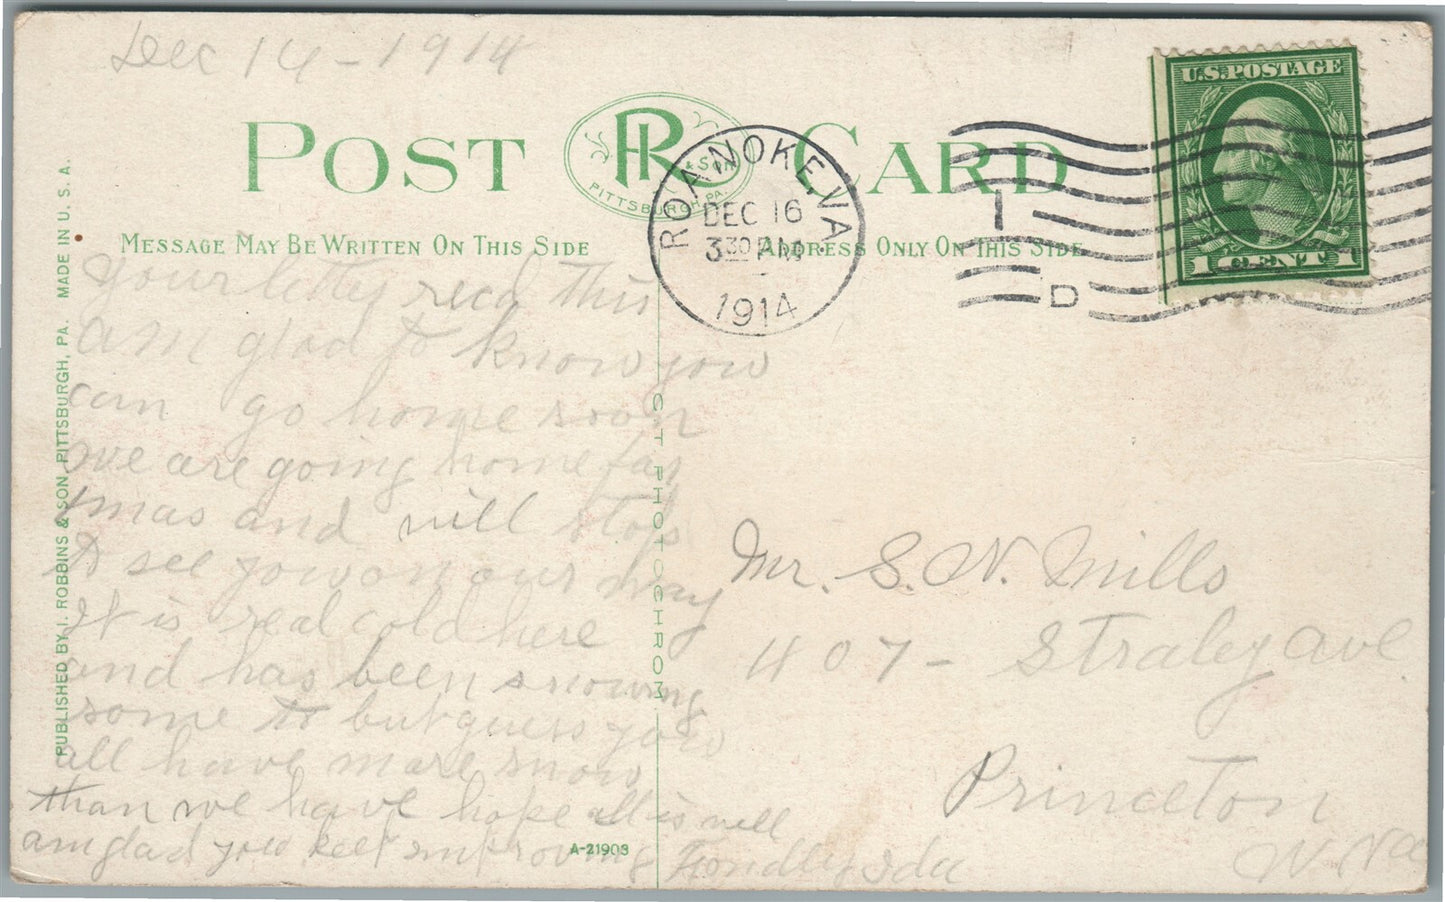 Dec 14 - 1914
POST CARD
IR & SON
PITTSBURGH, PA.
ROANOKE, VA
DEC 16
3 30 PM
1914
1
D
U.S. POSTAGE
1 CENT 1
MESSAGE MAY BE WRITTEN ON THIS SIDE
ADDRESS ONLY ON THIS SIDE
PUBLISHED BY I. ROBBINS & SON, PITTSBURGH, PA. MADE IN U. S. A.
PHOTOCHROM
Your recd this
am glad to know you
can go home soon
we are going home for
xmas and will stop
to see you on our way
It is real cold here
and has been snowing
some but guess you
all have more snow
than we have hope all is well
am glad you keep improving Fondly Ida
A-21903
Mr. S. W. Mills
407 - Straley Ave
Princeton
W. Va